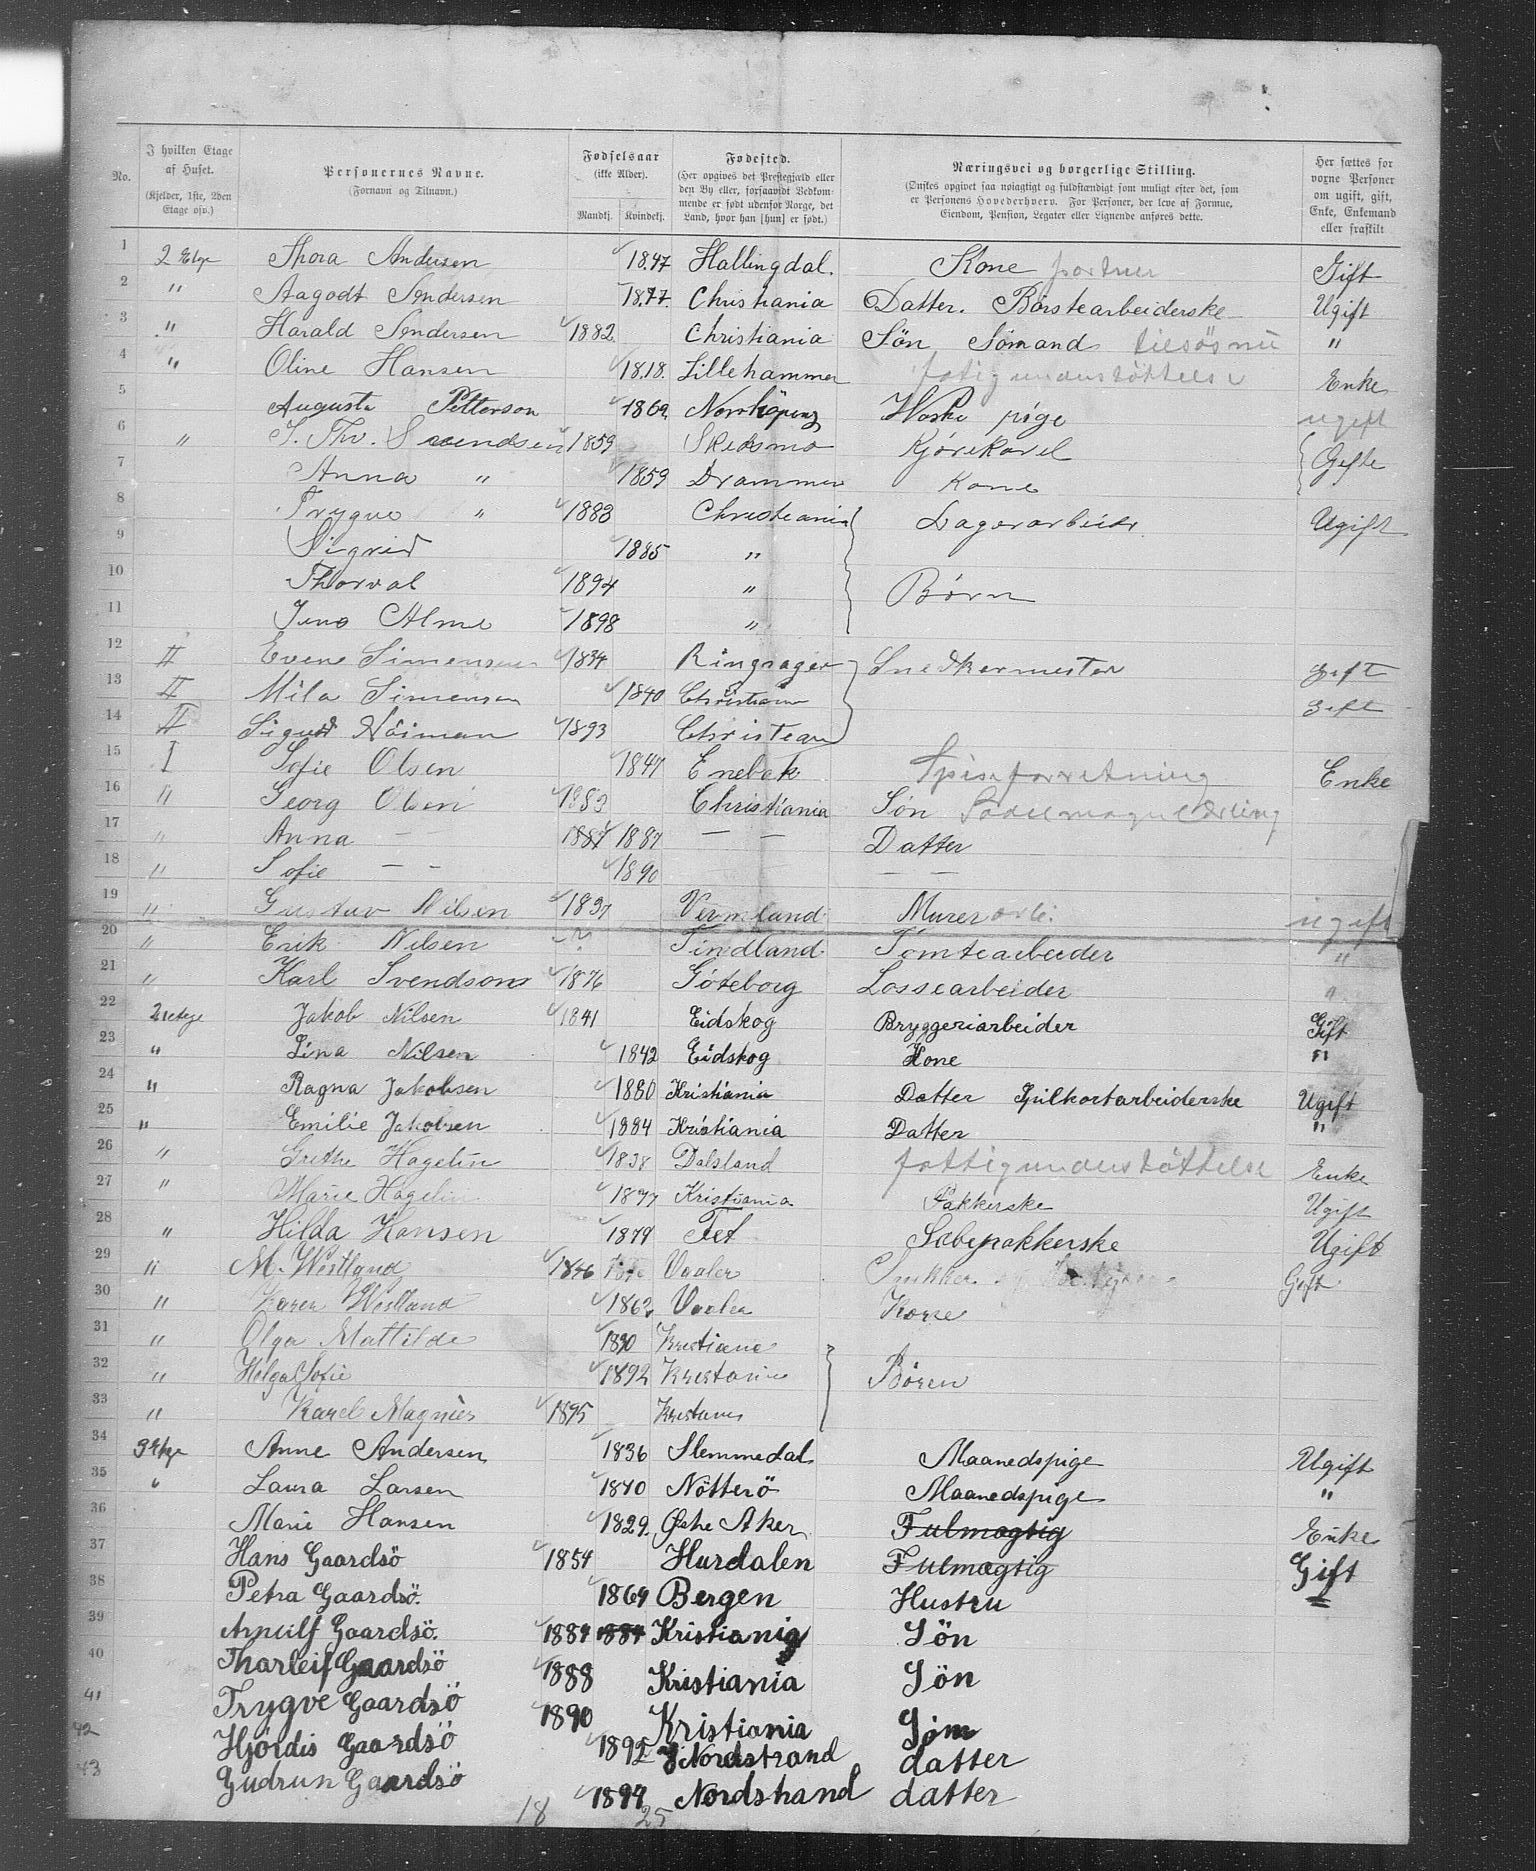 No. | I hvilken Etage af Huset. (Kjelder, 1ste, 2den Etage osv.) | Personernes Navne. (Fornavn og Tilnavn.) | Fødselsaar (ikke Alder). Mandkj. Kvindekj. | Fødested. (Her opgives det Prestegjæld eller den By eller, forsaavidt Vedkommende er født udenfor Norge, det Land, hvor han [hun] er født.) | Næringsvei og borgerlige Stilling. (Ønskes opgivet saa nøiagtigt og fuldstændigt som muligt efter det, som er Personens Hovederhverv. For Personer, der leve af Formue, Eiendom, Pension, Legater eller Lignende anføres dette. | Her sættes for voxne Personer om ugift, gift, Enke, Enkemand eller fraskilt
1 2 Etge Thora Andersen 1847 Hallingdal. Kone Gift
2 " Aagodt Andersen 1877 Christiania Datter. Børstearbeiderske Ugift
3 " Harald Andersen 1882 Christiania Søn Sømand tilsøs nu "
4 " Oline Hansen 1818. Lillehammer fatigunderstøttelse Enke
5 Augusta Petterson 1869 Norrköping Vaske pige ugift
6 " J. Thv. Svendsen 1859 Skedsmo Kjørekarel Gifte
7 Anna " 1859 Drammen Kone
8 Trygve " 1883 Christiania Lagerarbeider Ugift
9 Sigrid 1885 "
10 Thorval 1894 " Børn
11 Jens Alme 1898 "
12 II Evene Simensen 1834 Ringsager Snedkermester gift
13 II Mila Simensen 1840 Christiania gift
14 II Sigurd Nöiman 1893 Christian
15 I Sofie Olsen 1847 Enebak Spiseforretning Enke
16 " Georg Olsen 1883 Christiania Søn
17 " Anna — — 1887 1887 — — Datter
18 " Sofie — — 1890 — —
19 " Gustav Nilsen 1837 Vermland Murerarbei. ugift
20 " Erik Nilsen ? Findland Tomtearbeider "
21 " Karl Svendson 1876 Göteborg Lossearbeider "
22 2 etage Jakob Nilsen 1841 Eidskog Bryggeriarbeider Gift
23 " Lina Nilsen 1842 Eidskog Kone "
24 " Ragna Jakobsen 1880 Kristiania Datter Gulkortarbeiderske Ugift
25 " Emilie Jakobsen 1884 Kristiania Datter "
26 " Grethe Hagelin 1838 Dalsland fattigunderstøttelse Enke
27 " Marie Hagelin 1877 Kristiania Pakkerske Ugift
28 " Hilda Hansen 1879 Fet Sæbepakkerske Ugift
29 " M. Westland 1846 Vaaler Gift
30 " Karen Westland 1862 Vaaler Kone
31 " Olga Mattilde 1890 Kristiania
32 " Helga Sofie 1892 Kristania Børen
33 " Karel Magnus 1895 Kristania
34 3 Etge Anne Andersen 1836 Slemmedal Maanedspige Ugift
35 " Laura Larsen 1840 Nötterö Maanedspige "
36 Marie Hansen 1829. Østre Aker Fulmægtig Enke
37 Hans Gaardsö 1854 Hurdalen Fulmægtig Gift
38 Petra Gaardsö. 1864 Bergen Hustru "
39 Arnulf Gaardsö. 1884 1884 Kristiania Sön
40 Tharleif Gaardsö 1888 Kristiania Sön
41 Trygve Gaardsö 1890 Kristiania Sön
42 Hjördis Gaardsö 1892 Nordstrand datter
43 Gudrun Gaardsö 1894 Nordstrand datter
18 25